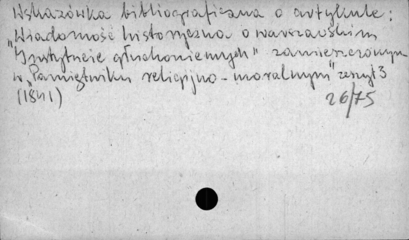 Wskazówka bibliograficzna o artykule:
"Wiadomość historyczna o warszawskim
Instytucie głuchoniemych" zamieszczonym
w "Pamiętniku religijno-moralnym" zeszyt 3
(1841)
26/75